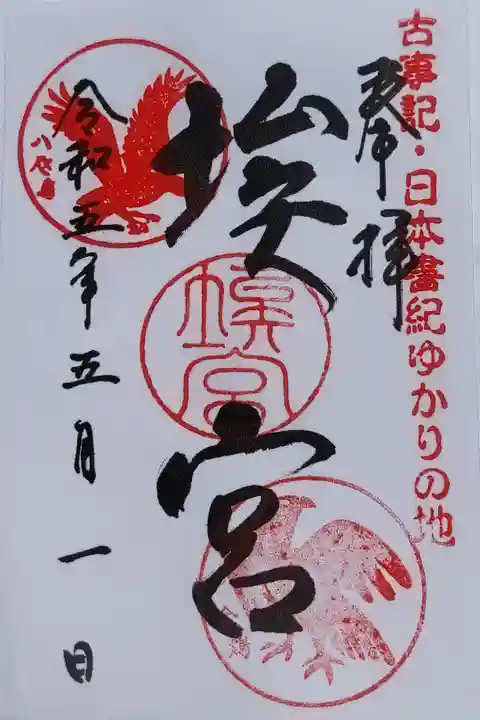 古事記・日本書紀ゆかりの地
奉拝
埃宮
埃宮
令和五年五月一日